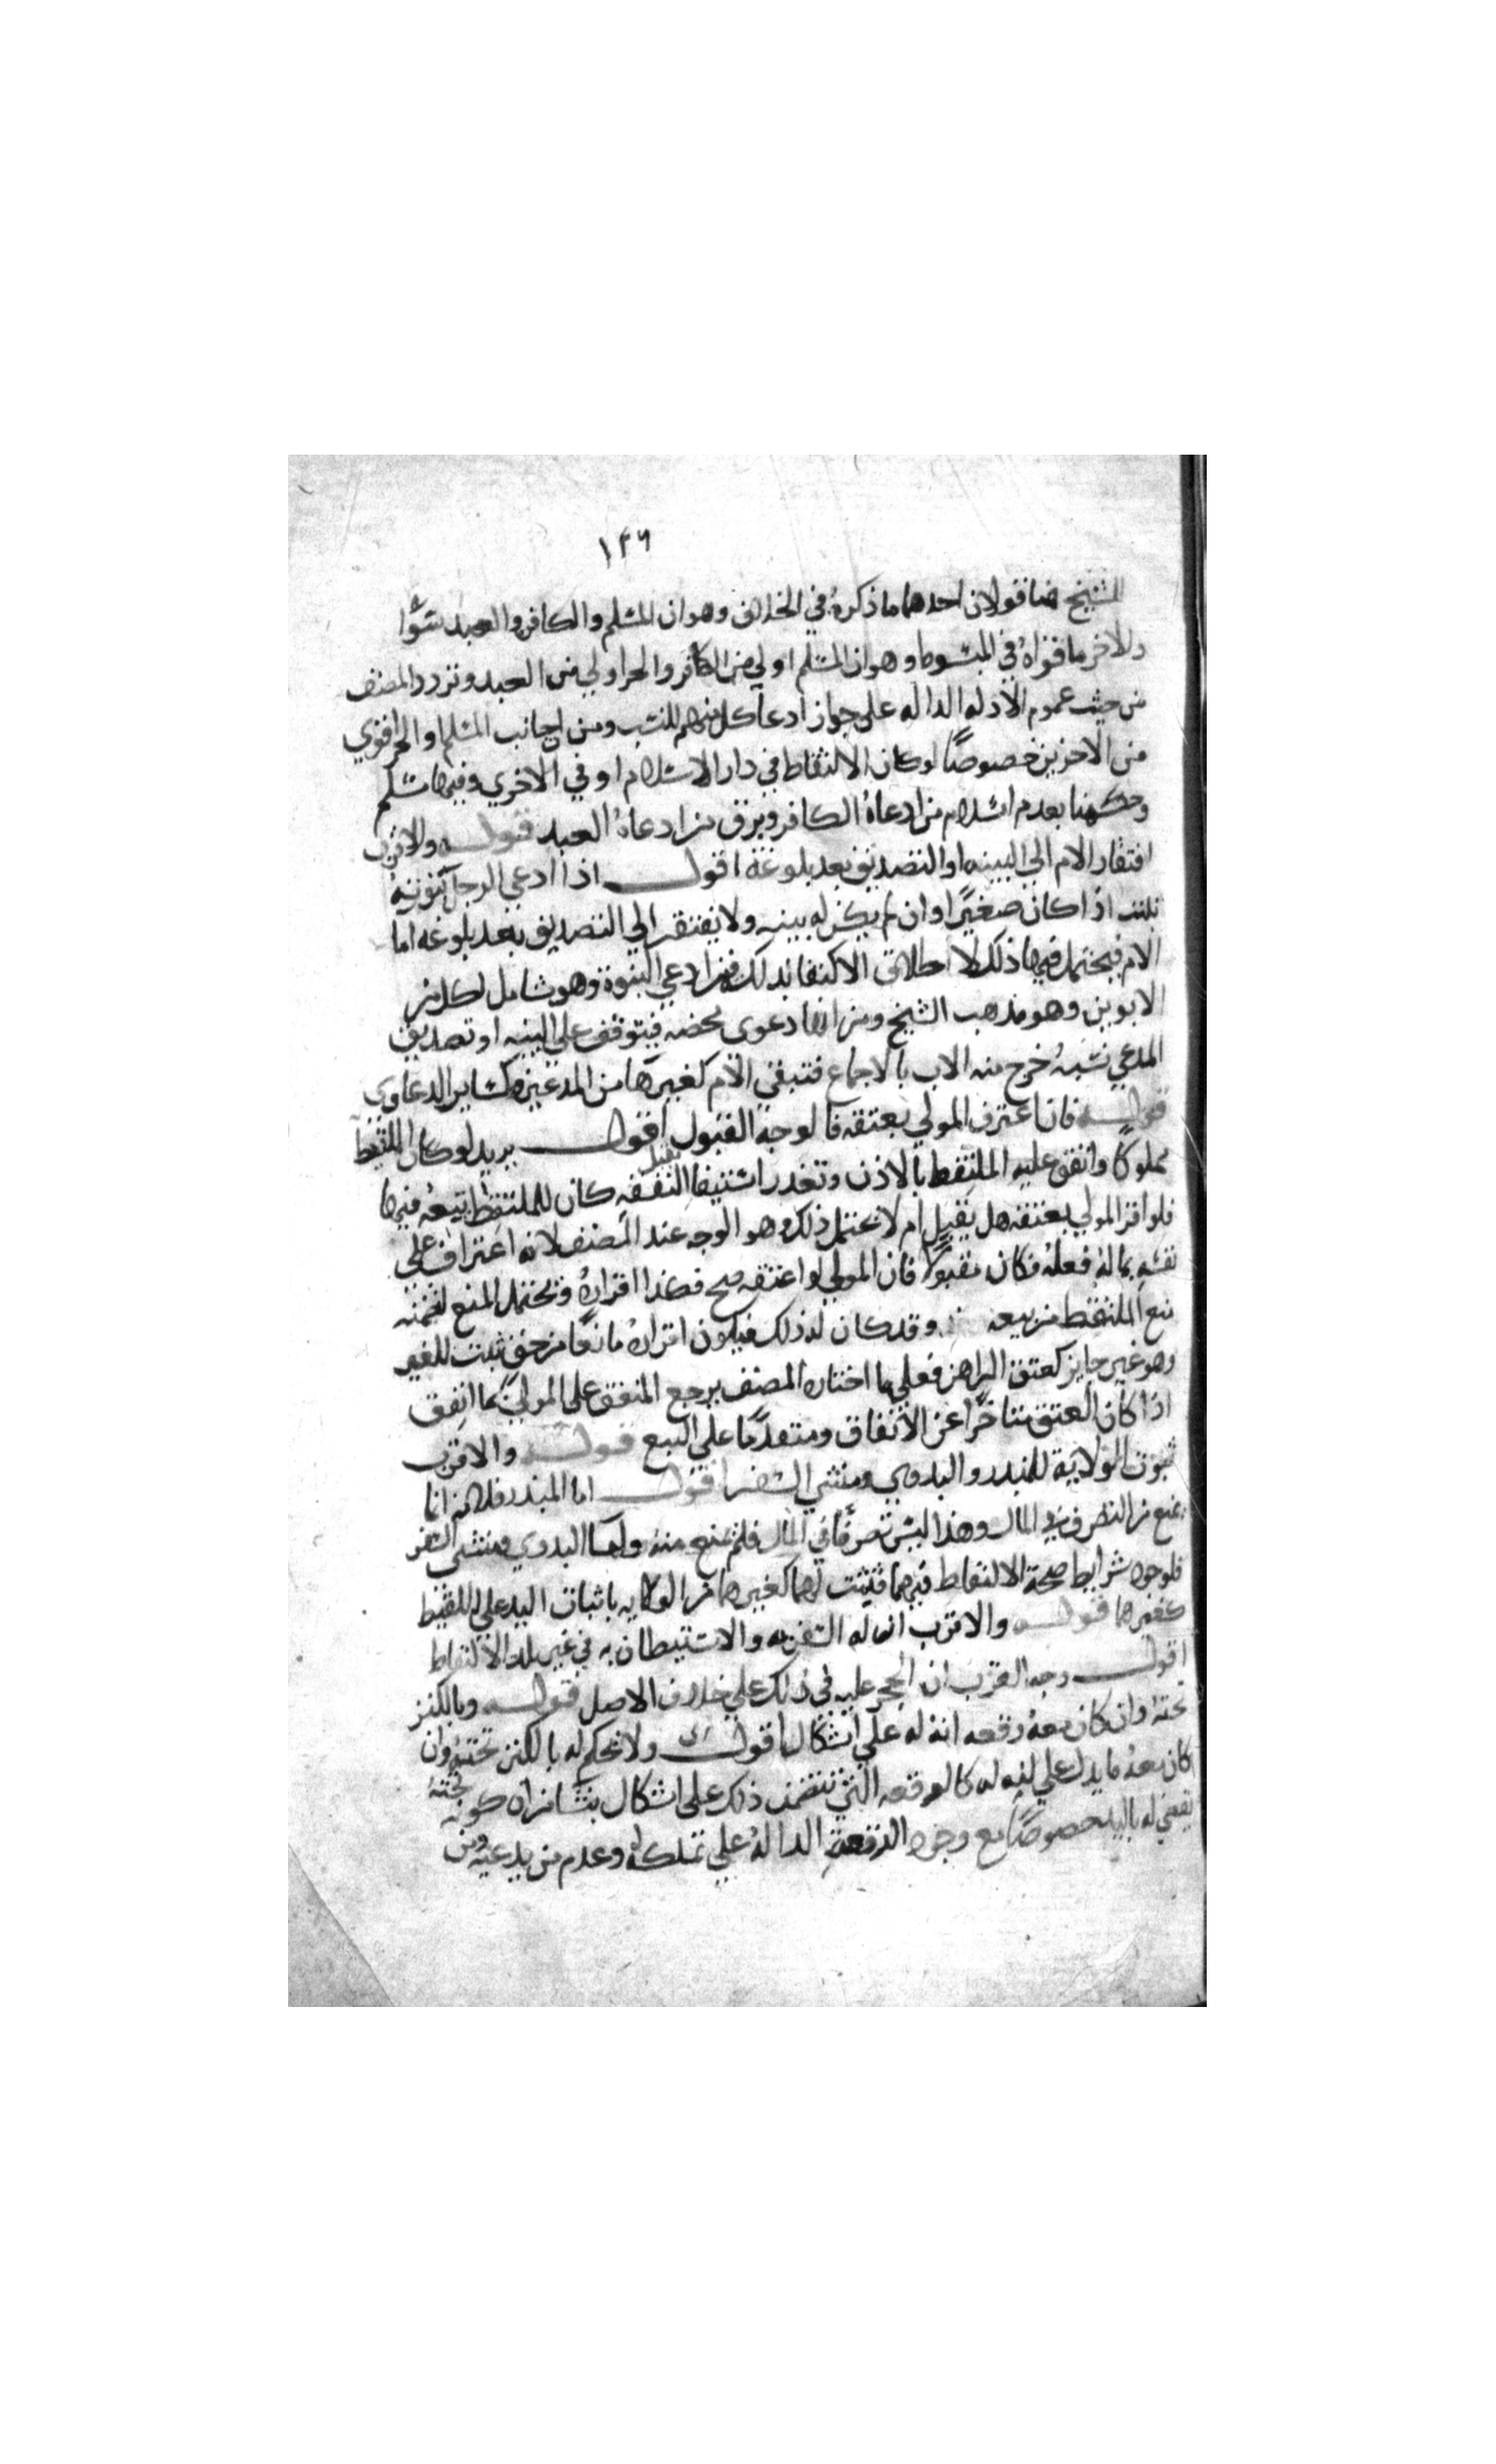 ١٢٦
للشيخ هنا قولان احدهما ما ذكره في الخلاف وهو ان المسلم والكافر والعبد سوا
والاخر ما قواه في المبسوط وهو ان المسلم اولي من الكافر والحر اولي من العبد وتردد المصنف
من حيث عموم الادله الداله علي جواز ادعا كل منهم للنسب ومن ان جانب المسلم او الحر اقوي
من الاخرين خصوصًا لو كان الالتقاط في دار الاسلام او في الاخري وفيها مسلم
وحكمنا بعدم اسلام من ادعاه الكافر وبرق من ادعاه العبد قوله والاقرب
افتقار الام الي البينه او التصديق بعد بلوغه اقول اذا ادعي الرجل بنوته
ثبتت اذا كان صغيرًا وان لم يكن له بينه ولا يفتقر الي التصديق بعد بلوغه اما
الام فيحتمل فيها ذلك لاطلاق الاكتفا بذلك فيمن ادعي البنوة وهو شامل لكل من
الابوين وهو مذهب الشيخ ومن انها دعوى محضه فيتوقف علي البينه او تصديق
المدعي نسبهُ خرج منه الاب بالاجماع فتبقي الام كغيرها من المدعين كساير الدعاوي
قوله فان اعترف المولي بعتقه فالوجه القبول اقول يريد لو كان الملتقط
مملوكًا وانفق عليه الملتقط بالاذن وتعذر استيفا النفقه كان للملتقط بيعه فيها
فلو اقر المولي بعتقه هل يقبل ام لا يحتمل ذلك وهو الوجه عند المصنف لانه اعتراف علي
نفسه بما له فعله فكان مقبولًا فان المولي لو اعتقه صح فكذا اقراره ويحتمل المنع لتضمنه
منع الملتقط من بيعه وقد كان له ذلك فيكون اقراره مانعًا من حق ثبت للغير
وهو غير جايز كعتق الراهن فعلي ما اختاره المصنف يرجع المنفق علي المولي بما انفق
اذا كان العتق متاخرًا عن الانفاق ومتقدمًا علي البيع قوله والاقرب
ثبوت الولاية للمبذر والبدوي ومنشي السفر اقول اما المبذر فلانه انما
يمنع من التصرف في المال وهذا ليس تصرفًا في المال فلم يمنع منه واما البدوي ومنشي السفر
فلوجود شرايط صحة الالتقاط فيهما فيثبت لهما كغيرهما من الولايه باثبات اليد علي اللقيط
كغيرهما قوله والاقرب ان له السفر به والاستيطان به في غير بلد الالتقاط
اقول وجه القرب ان الحجر عليه في ذلك علي خلاف الاصل قوله وبالكنز
تحته وان كان معه رقعه انه له علي اشكال اقول ولا يحكم له بالكنز تحته وان
كان معه ما يدل علي انه له كالرقعه التي تتضمن ذلك علي اشكال ينشا من ان كونه تحته
يقضي له باليد خصوصًا مع وجود الرقعة الداله علي تملكه له وعدم من يدعيه ومن